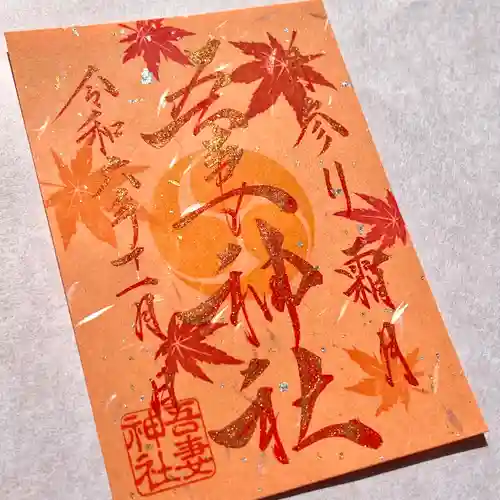 参り 霜月
吾妻神社
令和六年十一月 日
吾妻
神社